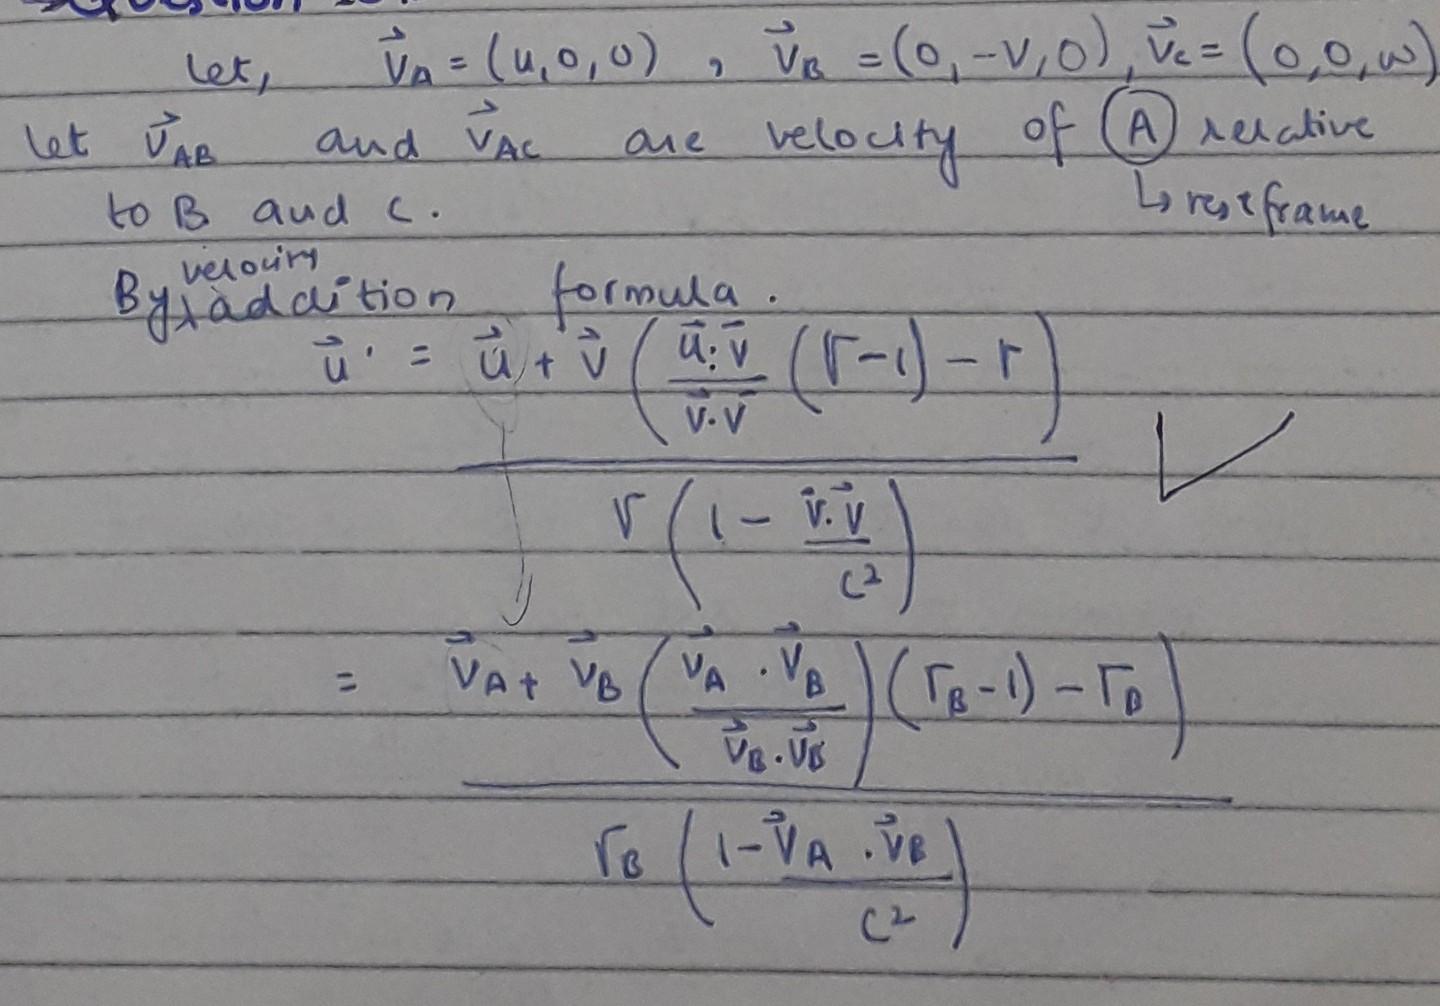 Let, v⃗_A = (u,0,0) , v⃗_B = (0,-v,0), v⃗_c = (0,0,w)
Let v⃗_AB and v⃗_AC are velocity of (A) relative
to B and C. ↳ rest frame
By velocity addition formula.
u⃗' = u⃗ + v⃗ ( u⃗·v⃗ / v⃗·v⃗ (Γ-1) - Γ )
Γ ( 1 - v⃗·v⃗ / c² )
= v⃗_A + v⃗_B ( v⃗_A · v⃗_B / v⃗_B·v⃗_B ) (Γ_B - 1) - Γ_B )
Γ_B ( 1 - v⃗_A · v⃗_B / c² )